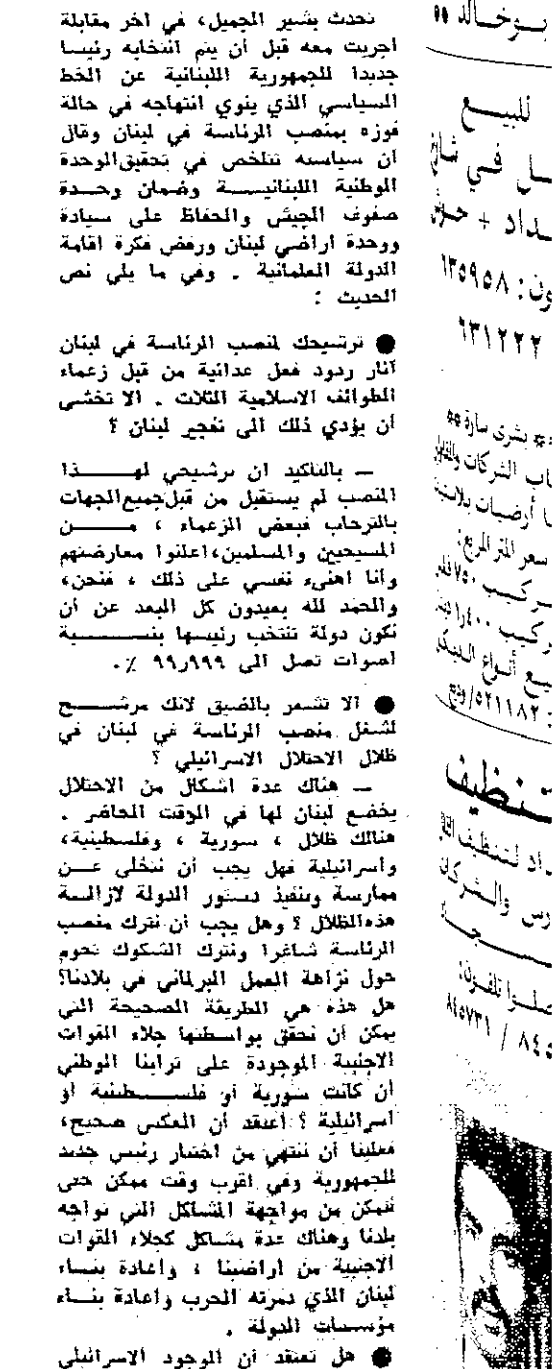 تحدث بشير الجميل، في اخر مقابلة
اجريت معه قبل أن يتم انتخابه رئيسا
جديدا للجمهورية اللبنانية عن الخط
السياسي الذي ينوي انتهاجه في حالة
فوزه بمنصب الرئاسة في لبنان وقال
أن سياسته تتلخص في تحقيق الوحدة
الوطنية اللبنانيـــة وضمان وحـدة
صفوف الجيش والحفاظ على سيادة
ووحدة اراضي لبنان ورفض فكرة اقامة
الدولة العلمانية . وفي ما يلي نص
الحديث :
● ترشيحك لمنصب الرئاسة في لبنان
أثار ردود فعل عدائية من قبل زعماء
الطوائف الاسلامية الثلاث . الا تخشى
أن يؤدي ذلك الى تفجير لبنان ؟
ــ بالتاكيد ان ترشيحي لهـــذا
المنصب لم يستقبل من قبل جميع الجهات
بالترحاب فبعض الزعماء ، مـــن
المسيحيين والمسلمين، اعلنوا معارضتهم
وأنا اهنىء نفسي على ذلك ، فنحن،
والحمد لله بعيدون كل البعد عن أن
نكون دولة تنتخب رئيسها بنســـبة
اصوات تصل الى ٩٩٫٩٩٩ ٪.
● الا تشعر بالضيق لانك مرشـــح
لشغل منصب الرئاسة في لبنان في
ظلال الاحتلال الاسرائيلي ؟
ــ هناك عدة اشكال من الاحتلال
يخضع لبنان لها في الوقت الحاضر .
هنالك ظلال ، سورية ، وفلسطينية،
واسرائيلية فهل يجب أن نتخلى عـن
ممارسة وتنفيذ دستور الدولة لازالـة
هذه الظلال ؟ وهل يجب أن نترك منصب
الرئاسة شاغرا ونترك الشكوك تحوم
حول نزاهة العمل البرلماني في بلادنا؟
هل هذه هي الطريقة الصحيحة التي
يمكن أن نحقق بواسطتها جلاء القوات
الاجنبية الموجودة على ترابنا الوطني
أن كانت سورية أو فلســـطينية أو
اسرائيلية ؟ أعتقد أن العكس صحيح،
فعلينا أن ننتهي من اختيار رئيس جديد
للجمهورية وفي اقرب وقت ممكن حتى
نتمكن من مواجهة المشاكل التي تواجه
بلدنا وهناك عدة مشاكل كجلاء القوات
الاجنبية من أراضينا ، واعادة بنـاء
لبنان الذي دمرته الحرب واعادة بنـاء
مؤسسات الدولة .
● هل تعتقد أن الوجود الاسرائيلي
بـوخـالد
للبيــع
فـي
+
٦٣٥٩٥٨
٦٣١٢٢٢
** بشرى سارة **
الشركات
أرضيات
سعر المتر المربع:
٧٥٠
أنـواع
تـنظيف
لتنظيف
والـشركات
تلفـون:
٨٤٥٧٣١ /